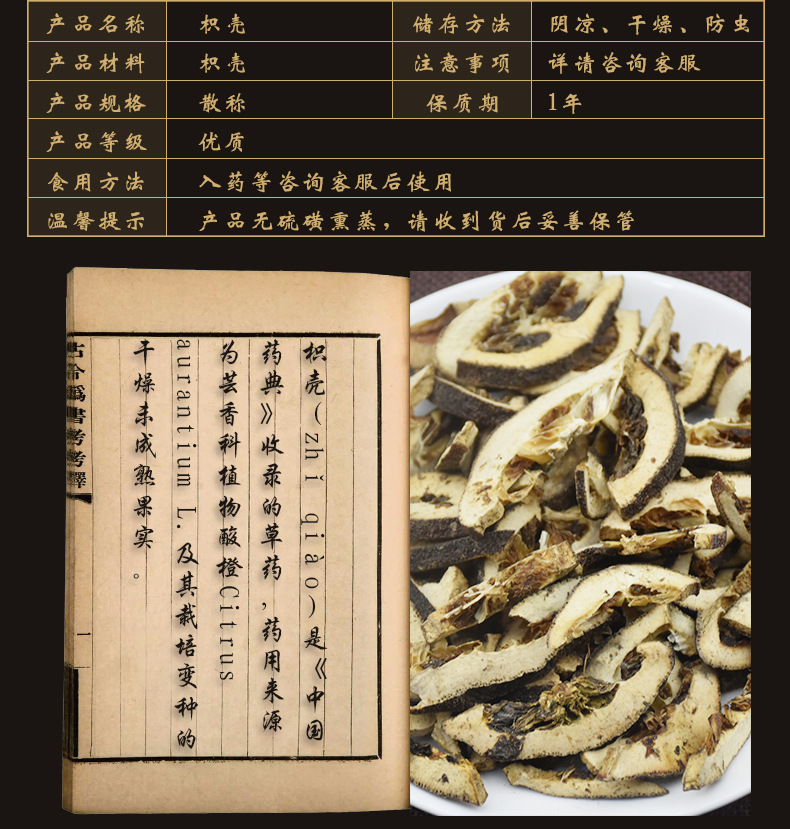 产品名称 枳壳 储存方法 阴凉、干燥、防虫
产品材料 枳壳 注意事项 详请咨询客服
产品规格 散称 保质期 1年
产品等级 优质
食用方法 入药等咨询客服后使用
温馨提示 产品无硫磺熏蒸，请收到货后妥善保管
枳壳(zhǐ qiào)是《中国
药典》收录的草药,药用来源
为芸香科植物酸橙Citrus
aurantium L.及其栽培变种的
干燥未成熟果实。
古今爲書考考釋
一